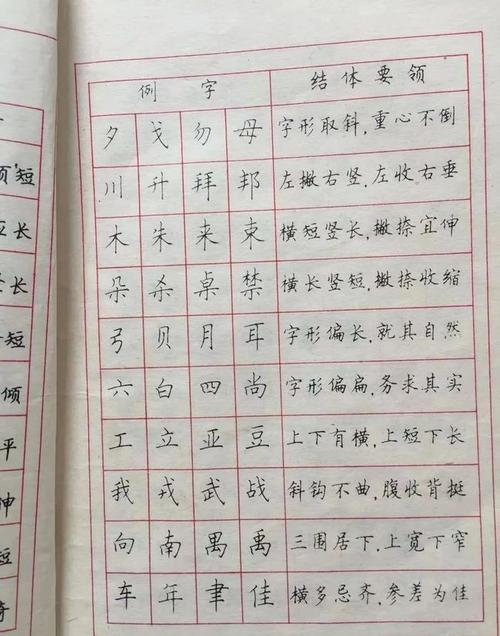 例字 结体要领
夕 戈 勿 母 字形取斜,重心不倒
川 升 拜 邦 左撇右竖,左收右垂
木 朱 来 束 横短竖长,撇捺宜伸
朵 杀 桌 禁 横长竖短,撇捺收缩
弓 贝 月 耳 字形偏长,就其自然
六 白 四 尚 字形偏扁,务求其实
工 立 亚 豆 上下有横,上短下长
我 戎 武 战 斜钩不曲,腹收背挺
向 南 禺 禹 三围居下,上宽下窄
车 年 聿 佳 横多忌齐,参差为佳
短
长
长
短
倾
平
伸
短